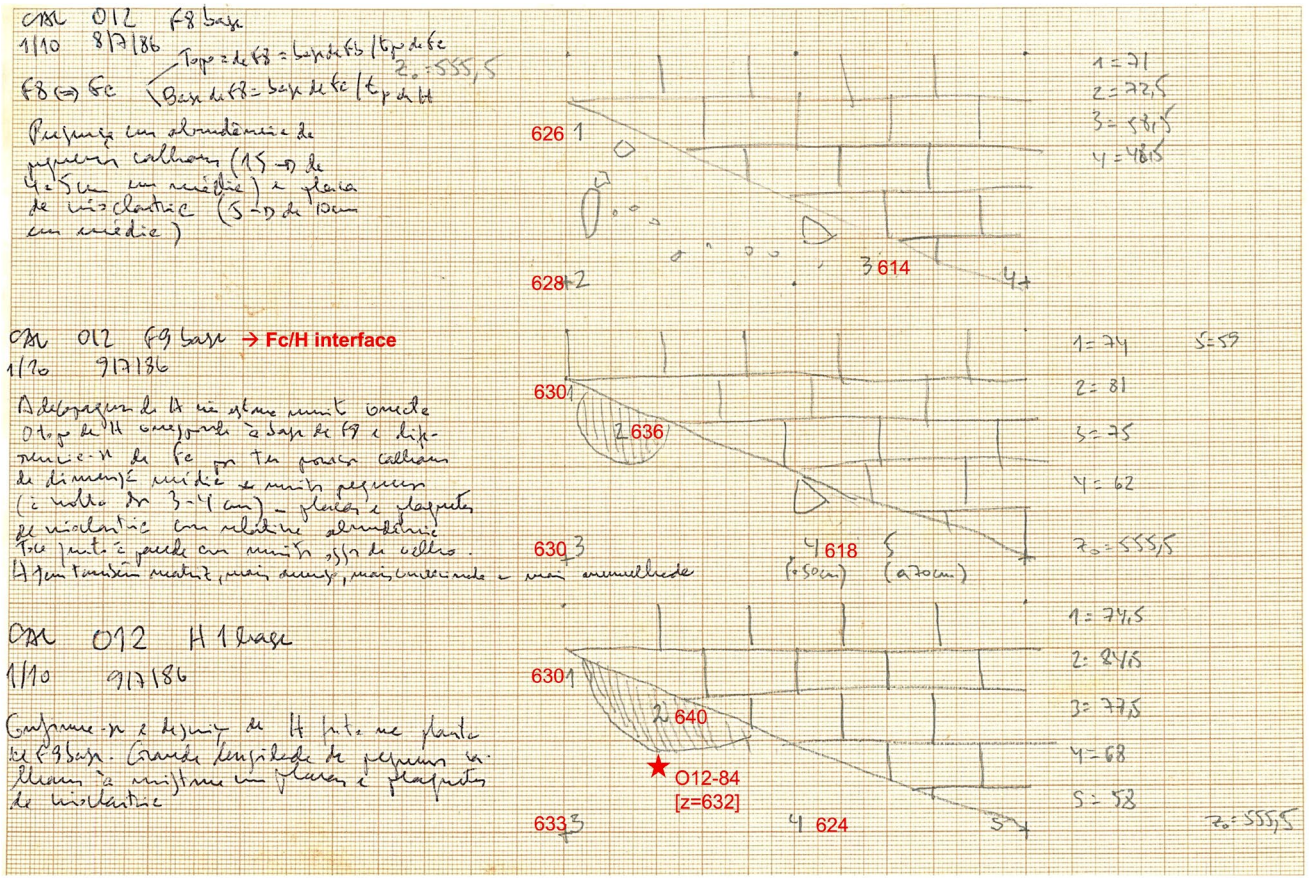 CAL 012 F8 base
1/10 8/7/86
Topo de F8 = base de Fb / topo de Fc
z₀ = 555,5
F8 ⇔ Fc
Base de F8 = base de Fc / topo de H
em abundância de
pequenos calhaus (15 → de
4 a 5 cm em média) e placas
de (5 → de 10 cm
em média)
626 1
628 +2
3 614
4+
1 = 71
2 = 72,5
3 = 58,5
4 = 48,5
CAL 012 F9 base → Fc/H interface
1/10 9/7/86
A decapagem de H não esteve muito
O topo de H corresponde à base de F9 e dife-
rencia-se de Fc por ter poucos calhaus
de dimensão média e muitos pequenos
(à volta dos 3-4 cm) – placas e plaquetes
de com relativa abundância
junto à parede com muitos ossos de coelho.
H tem também matriz, mais escura, mais e mais avermelhada
630 1
2 636
630 3
4 618
5
(a 50cm) (a 70cm)
1 = 74 5 = 59
2 = 81
3 = 75
4 = 62
z₀ = 555,5
CAL 012 H1 base
1/10 9/7/86
Confirma-se a de H feita na planta
de F9 base. Grande densidade de pequenos ca-
lhaus à mistura com placas e plaquetes
de
630 1
2 640
O12-84
[z=632]
633 3
4 624
5
1 = 74,5
2 = 84,5
3 = 77,5
4 = 68
5 = 58
z₀ = 555,5